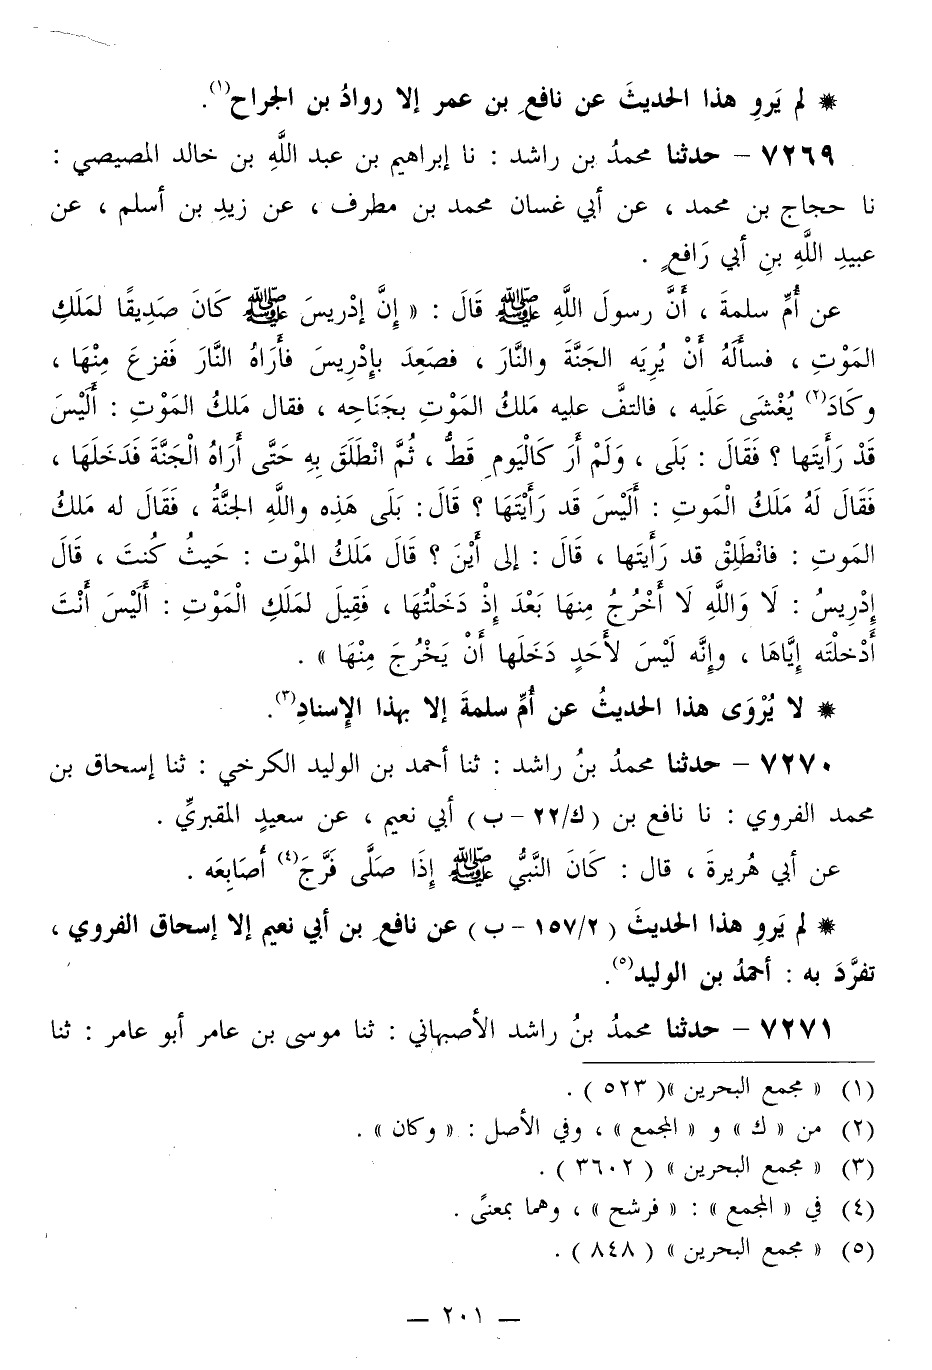 * لم يَروِ هذا الحديثَ عن نافعِ بن عمر إلا روادُ بن الجراح(١).
٧٢٦٩ – حدثنا محمدُ بن راشد : نا إبراهيم بن عبد اللَّهِ بن خالد المصيصي :
نا حجاج بن محمد ، عن أبي غسان محمد بن مطرف ، عن زيدِ بن أسلم ، عن
عبيدِ اللَّهِ بنِ أبي رَافعٍ .
عن أُمِّ سلمة ، أَنَّ رسولَ اللَّهِ ﷺ قَالَ : « إِنَّ إدْرِيسَ ﷺ كَانَ صَدِيقًا لمَلَكِ
المَوْتِ ، فسأَلَهُ أَنْ يُرِيَه الجَنَّةَ والنَّارَ ، فصَعِدَ بإِدْرِيسَ فأَرَاهُ النَّارَ فَفزعَ مِنْهَا ،
وكَادَ(٢) يُغْشَى عَلَيه ، فالتفَّ عليه مَلكُ المَوْتِ بجَنَاحِه ، فقال مَلكُ المَوْتِ : أَلَيْسَ
قَدْ رَأَيتَها ؟ فَقَالَ : بَلَى ، وَلَمْ أَرَ كَالْيَومِ قَطُّ ، ثُمَّ انْطَلَقَ بِهِ حَتَّى أَرَاهُ الْجَنَّةَ فَدَخَلَهَا ،
فَقَالَ لَهُ مَلَكُ الْمَوتِ : أَلَيْسَ قَد رَأَيْتَهَا ؟ قَالَ: بَلَى هَذِه واللَّهِ الجنَّةُ ، فَقَالَ له مَلكُ
المَوتِ : فانْطَلِقْ قد رَأَيتَها ، قَالَ : إلى أَيْنَ ؟ قَالَ مَلَكُ الموْت : حَيثُ كُنتَ ، قَالَ
إدْرِيسُ : لَا وَاللَّهِ لَا أَخْرُجُ مِنهَا بَعْدَ إذْ دَخَلْتُهَا ، فقِيلَ لمَلَكِ الْمَوْتِ : أَلَيْسَ أَنْتَ
أَدْخلْتَه إيَّاهَا ، وإنَّه لَيْسَ لأَحَدٍ دَخَلَها أَنْ يَخْرُجَ مِنْهَا » .
* لا يُرْوَى هذا الحديثُ عن أُمِّ سلمةَ إلا بهذا الإسنادِ(٣).
٧٢٧٠ – حدثنا محمدُ بنُ راشد : ثنا أحمد بن الوليد الكرخي : ثنا إسحاق بن
محمد الفروي : نا نافع بن (ك/٢٢ – ب) أبي نعيم ، عن سعيدٍ المقبريِّ .
عن أبي هُريرةَ ، قال : كَانَ النَّبيُّ ﷺ إِذَا صَلَّى فَرَّجَ(٤) أَصَابِعَه .
* لم يَروِ هذا الحديثَ (١٥٧/٢ – ب) عن نافعِ بن أبي نعيم إلا إسحاق الفروي ،
تفرَّدَ به : أحمدُ بن الوليد(٥).
٧٢٧١ – حدثنا محمدُ بنُ راشد الأصبهاني : ثنا موسى بن عامر أبو عامر : ثنا
(١) « مجمع البحرين »( ٥٢٣ ) .
(٢) من « ك » و « المجمع » ، وفي الأصل : « وكان » .
(٣) « مجمع البحرين » ( ٣٦٠٢ ) .
(٤) في « المجمع » : « فرشح » ، وهما بمعنىً .
(٥) « مجمع البحرين » ( ٨٤٨ ) .
— ٢٠١ —